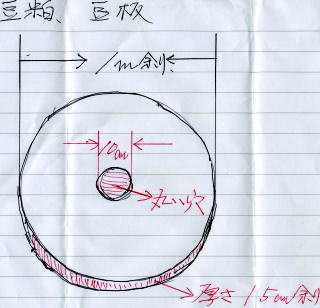 豆粕、豆板
1m余り
10cm
丸い穴
厚さ15cm余